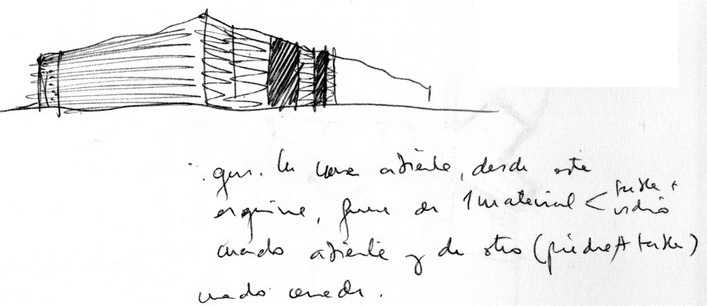 que. la casa abierta, desde esta
esquina, fuese de 1 material < +
vidrio
cuando abierta y de otro (piedra + )
cuando cerrada.